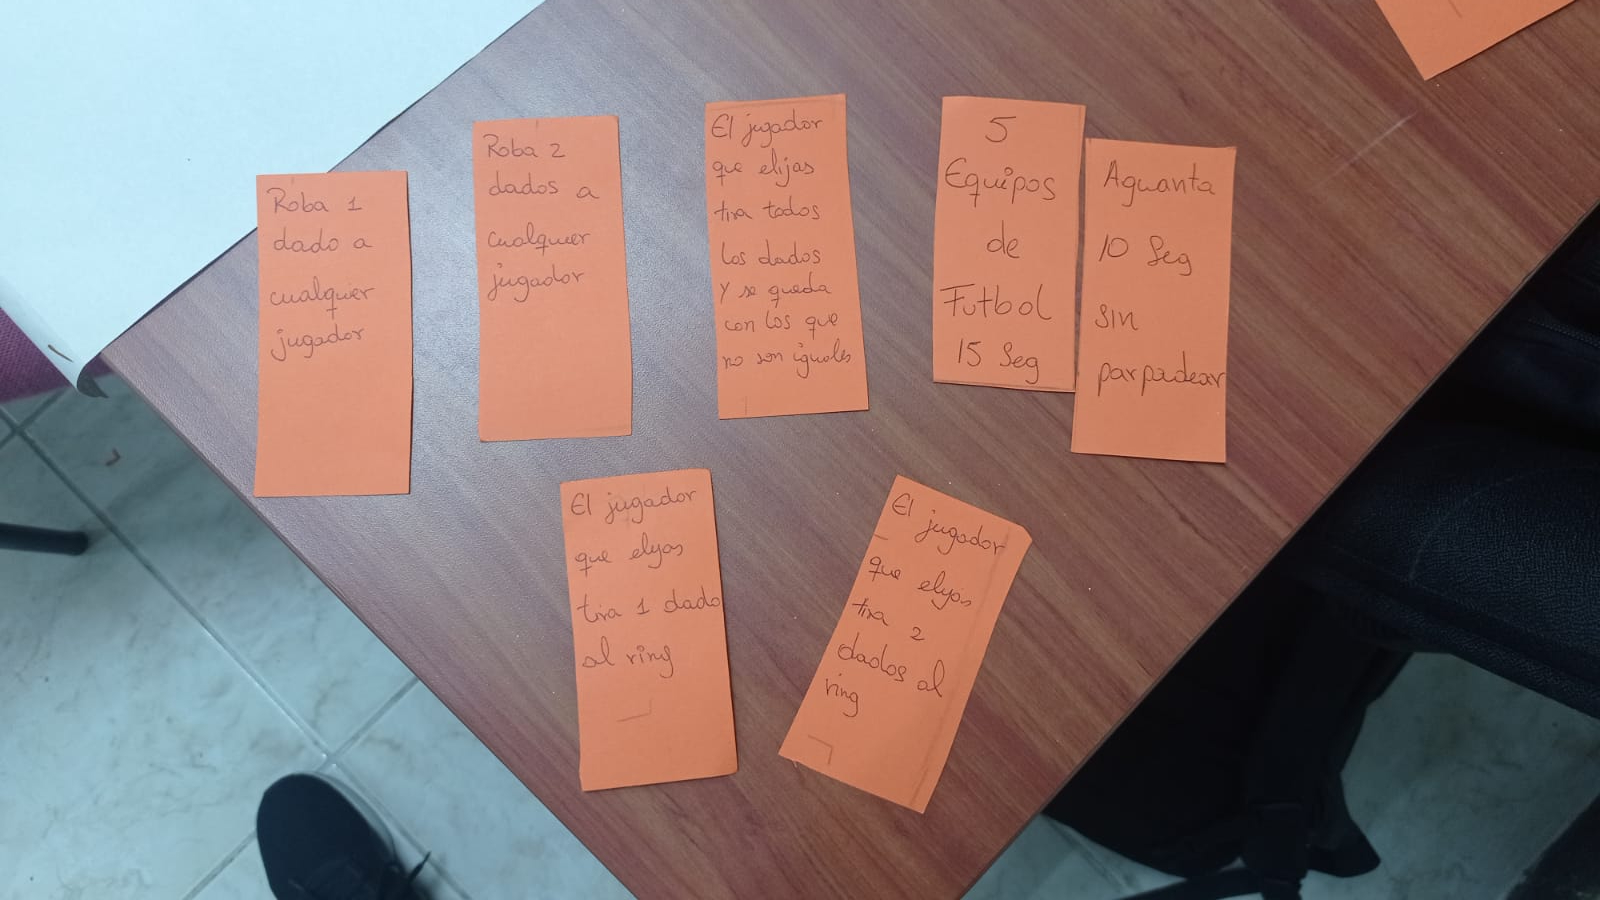 Roba 1
dado a
cualquier
jugador
Roba 2
dados a
cualquier
jugador
El jugador
que elijas
tira todos
los dados
y se queda
con los que
no son iguales
5
Equipos
de
Futbol
15 Seg
Aguanta
10 Seg
sin
parpadear
El jugador
que elijas
tira 1 dado
al ring
El jugador
que elijas
tira 2
dados al
ring